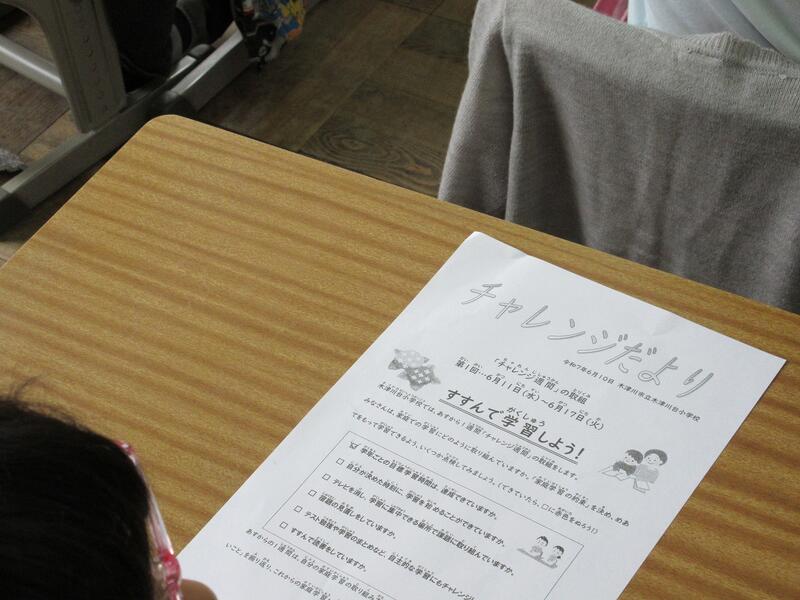 チャレンジだより
令和7年6月10日 木津川市立木津川台小学校
「チャレンジ週間」の取組
第1回…6月11日(水)～6月17日(火)
すすんで学習しよう!
木津川台小学校では、あすから1週間「チャレンジ週間」の取組をします。
みなさんは、家庭での学習にどのように取り組んでいますか。「家庭学習の約束」を決め、めあ
てをもって学習できるよう、いくつか点検してみましょう。(できていたら、□に赤色をぬろう!)
学年ごとの目標学習時間は、達成できていますか。
□ 自分が決めた時刻に、学習を始めることができていますか。
□ テレビを消し、学習に集中できる場所で課題に取り組んでいますか。
□ 宿題の見直しをしていますか。
□ テスト勉強や学習のまとめなど、自主的な学習にもチャレンジし
□ すすんで読書をしていますか。
あすからの1週間は、自分の家庭学習の取り組み
いこと」を振り返り、これからの家庭学習